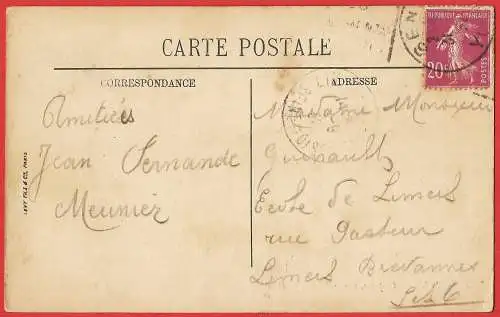 RÉPUBLIQUE FRANÇAISE
20c
POSTES
CARTE POSTALE
CORRESPONDANCE
ADRESSE
Amitiées
Jean Fernande
Meunier
LEVY FILS & CO, PARIS
Madame Monsieur
Guénault
Ecole de Limeis
rue Pasteur
Limeis Brevannes